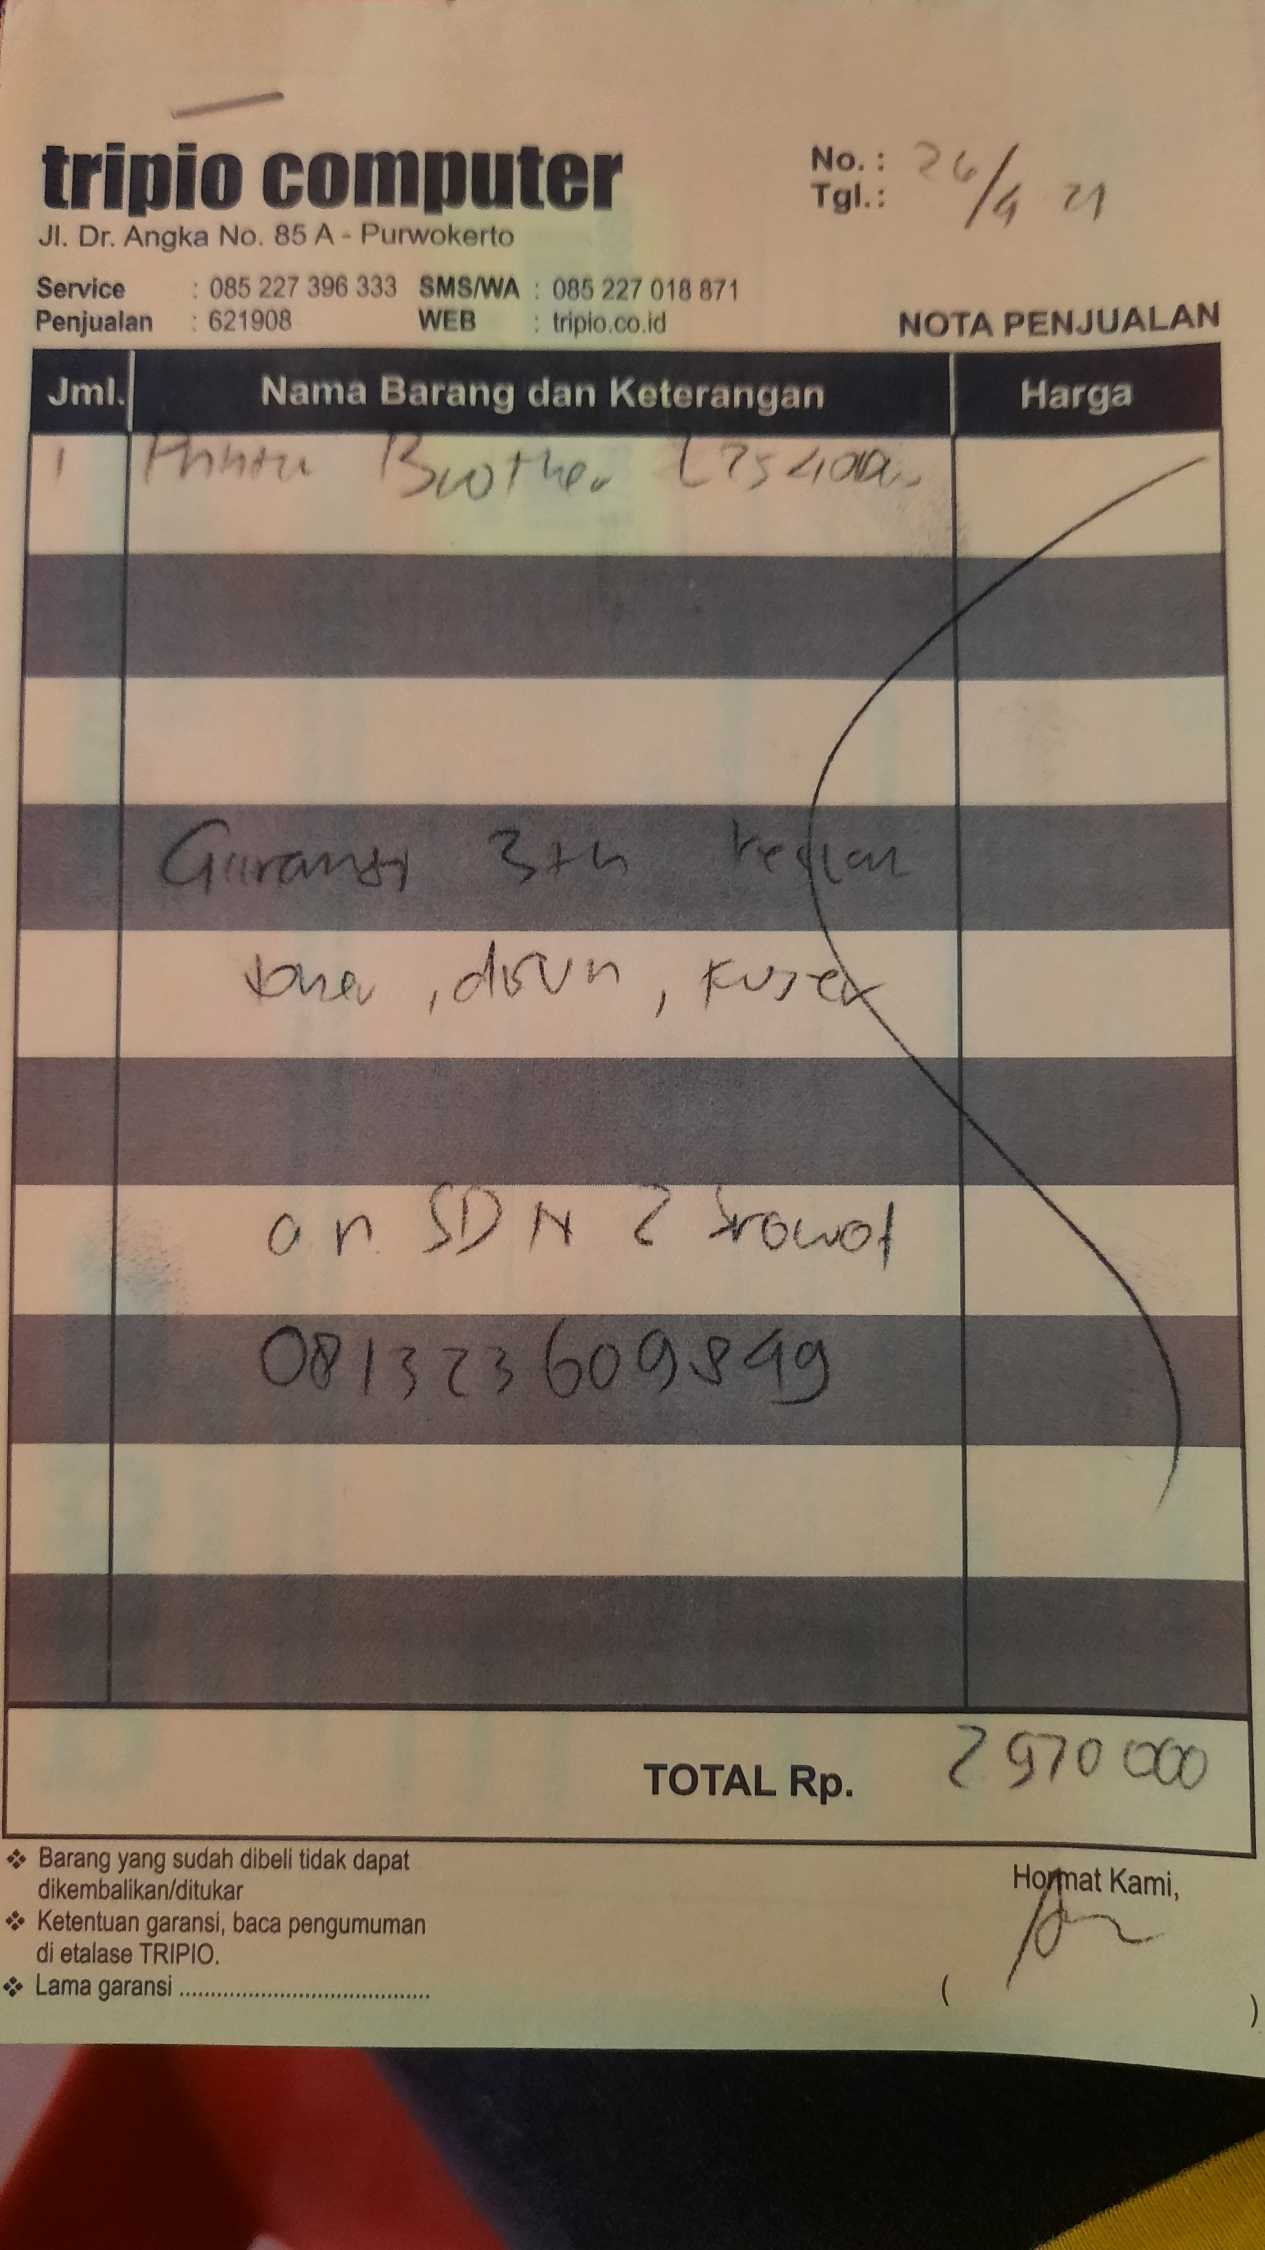 tripio computer
Jl. Dr. Angka No. 85 A - Purwokerto
No. :
Tgl.: 26/4 21
Service : 085 227 396 333 SMS/WA : 085 227 018 871
Penjualan : 621908 WEB : tripio.co.id
NOTA PENJUALAN
Jml. Nama Barang dan Keterangan Harga
1 Printer Brother
Garansi 3 th kecuali
toner, drum, fuser
an SDN 2 Srowot
081323609849
TOTAL Rp. 2 970 000
❖ Barang yang sudah dibeli tidak dapat
dikembalikan/ditukar
❖ Ketentuan garansi, baca pengumuman
di etalase TRIPIO.
❖ Lama garansi ........................................
Hormat Kami,
( )